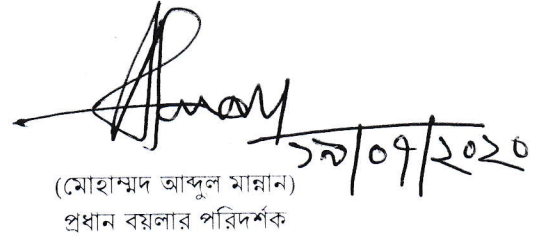 ১৯/০৭/২০২০
(মোহাম্মদ আব্দুল মান্নান)
প্রধান বয়লার পরিদর্শক